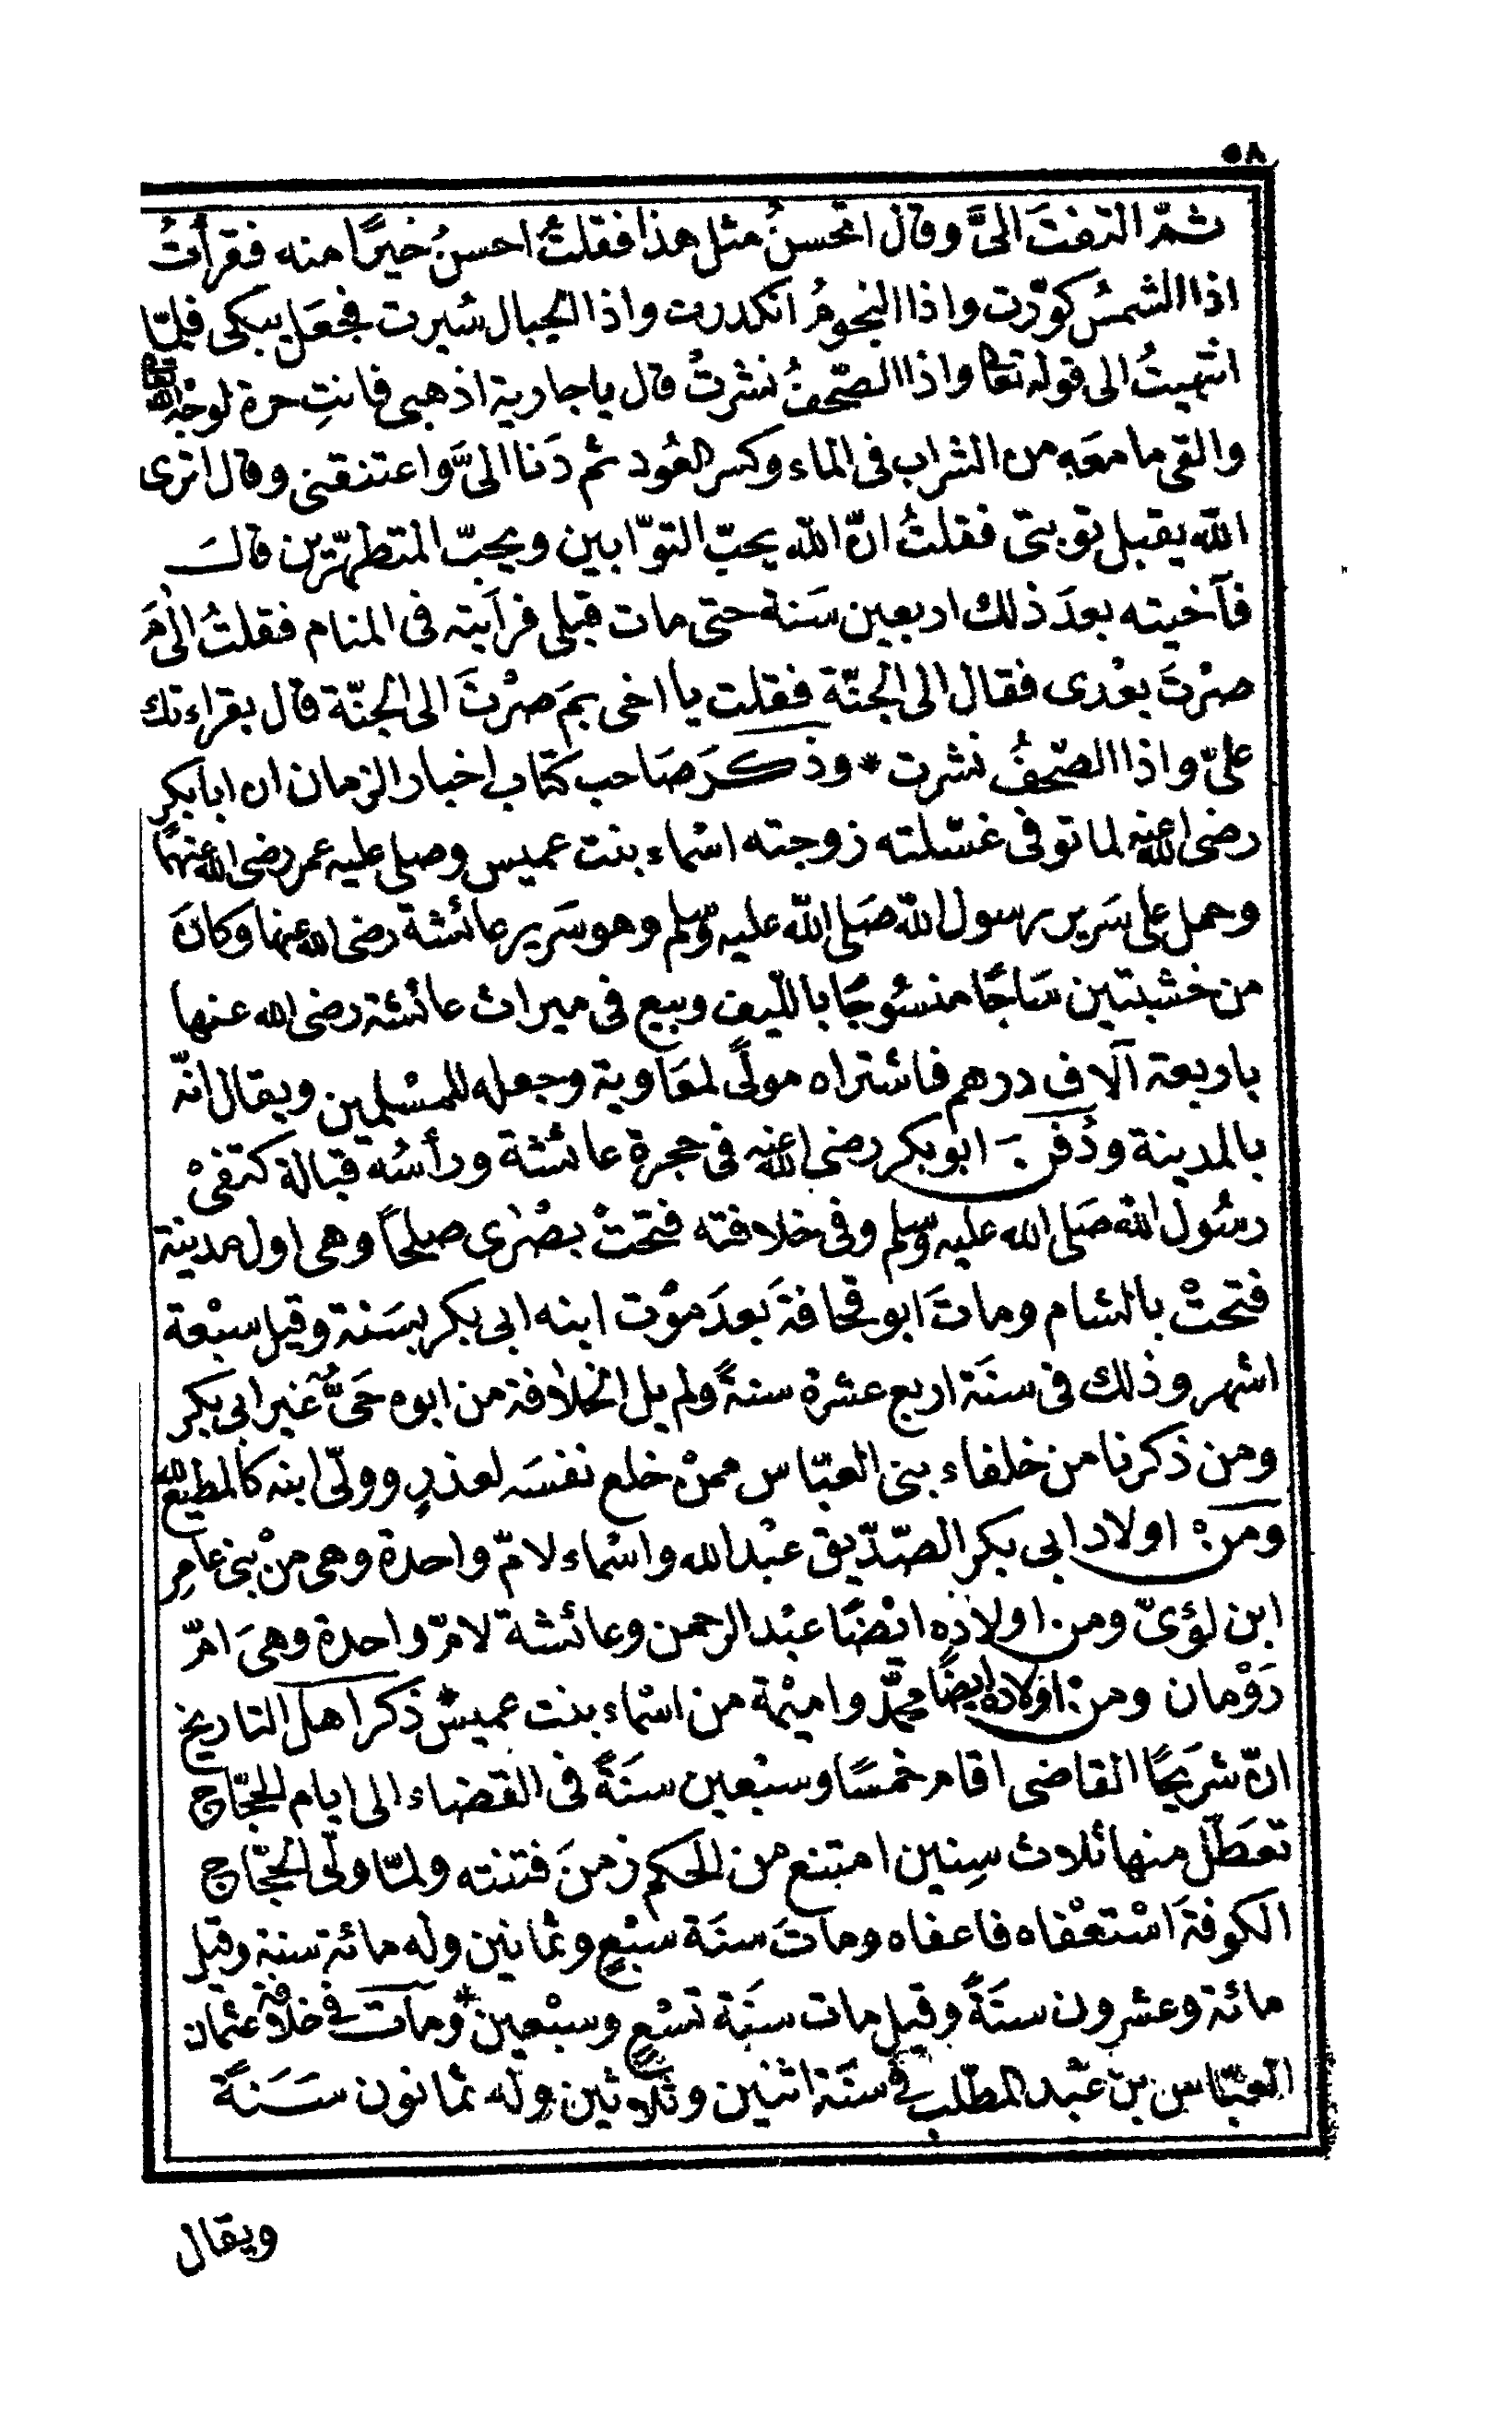 ٥٨
ثمّ التفتَ الىَّ وقال اتحسنُ مثل هذا فقلتُ احسنُ خيرًا منه فقرأتُ
اذا الشمسُ كوّرت واذا النجومُ انكدرت واذا الجبال سُيرت فجعَل يبكى فلمّا
انتهيتُ الى قوله تعا واذا الصّحفُ نشرتْ قال يا جارية اذهبى فانتِ حرة لوجْه الله تعا
والقى ما معَه من الشراب فى الماء وكسر العُود ثم دَنا الىَّ واعتنقنى وقال اترى
الله يقبل توبتى فقلتُ انّ الله يحبّ التوّابين ويحبّ المتطهّرين قالَ
فآخيته بعدَ ذلك اربعين سَنة حتى مات قبلى فرأيته فى المنام فقلتُ الٰى مَ
صرْتَ بعْدى فقال الى الجنّة فقلت يا اخى بمَ صرْتَ الى الجنّة قال بقراءتك
علىّ واذا الصّحفُ نشرت * وذكرَ صَاحب كتاب اخبار الزمان ان ابا بكر
رضى الله عنه لما توفى غسّلته زوجته اسْماء بنت عميس وصلى عليه عمر رضى الله عنهمَا
وحمل على سَرير رسول الله صَلى الله عليه وسلم وهو سَرير عائشة رضى الله عنها وكانَ
من خشبتين سَاجًا منسُوجًا بالليف وبيع فى ميراث عائشة رضى الله عنها
باربعة آلاف درهم فاشتراه مولًى لمعَاوية وجعله للمسْلمين ويقال انّه
بالمدينة ودُفن ابو بكر رضى الله عنه فى حجرة عائشة ورأسُه قبالة كتفىْ
رسُول الله صَلى الله عليه وسلم وفى خلافته فتحَتْ بصْرٰى صلحًا وهى اول مدينة
فتحتْ بالشام وماتَ ابو قحافةَ بعدَ موْت ابنه ابى بكر بسَنة وقيل سبْعة
اشهر وذلك فى سنَة اربع عشرة سنةً ولم يل الخلافة من ابوه حَىٌّ غير ابى بكر
ومن ذكرنا من خلفاء بنى العبّاس ممنْ خلع نفسَه لعذرٍ وولّى ابنه كالمطيع لله
ومن اولاد ابى بكر الصّدّيق عبْد الله واسْماء لامّ واحدة وهى منْ بنى عامِر
ابن لؤىّ ومن اولاده ايْضًا عبْد الرحمن وعائشة لامّ واحدة وهىَ امّ
رَوْمان ومن اولاده ايضًا محمّد واميْمة من اسْماء بنت عميسْ * ذكر اهل التاريخ
انّ شرَيحًا القاضى اقام خمسًا وسبْعين سنَةً فى القضاء الى ايام الحجّاج
تعَطّل منها ثلاث سِنين امتنع من الحكم زمنَ فتنته ولمّا ولّى الحجّاج
الكوفةَ اسْتعْفاه فاعفاه وماتَ سنَة سبْعٍ وثمانين وله مائة سنة وقيل
مائة وعشرون سنَةً وقيل مات سنَة تسْعٍ وسبْعين * ومات فى خلافة عثمان
العبّاس بن عبْد المطّلب فى سنَة اثنين وثلاثين وله ثمانون سَنَةً
ويقال